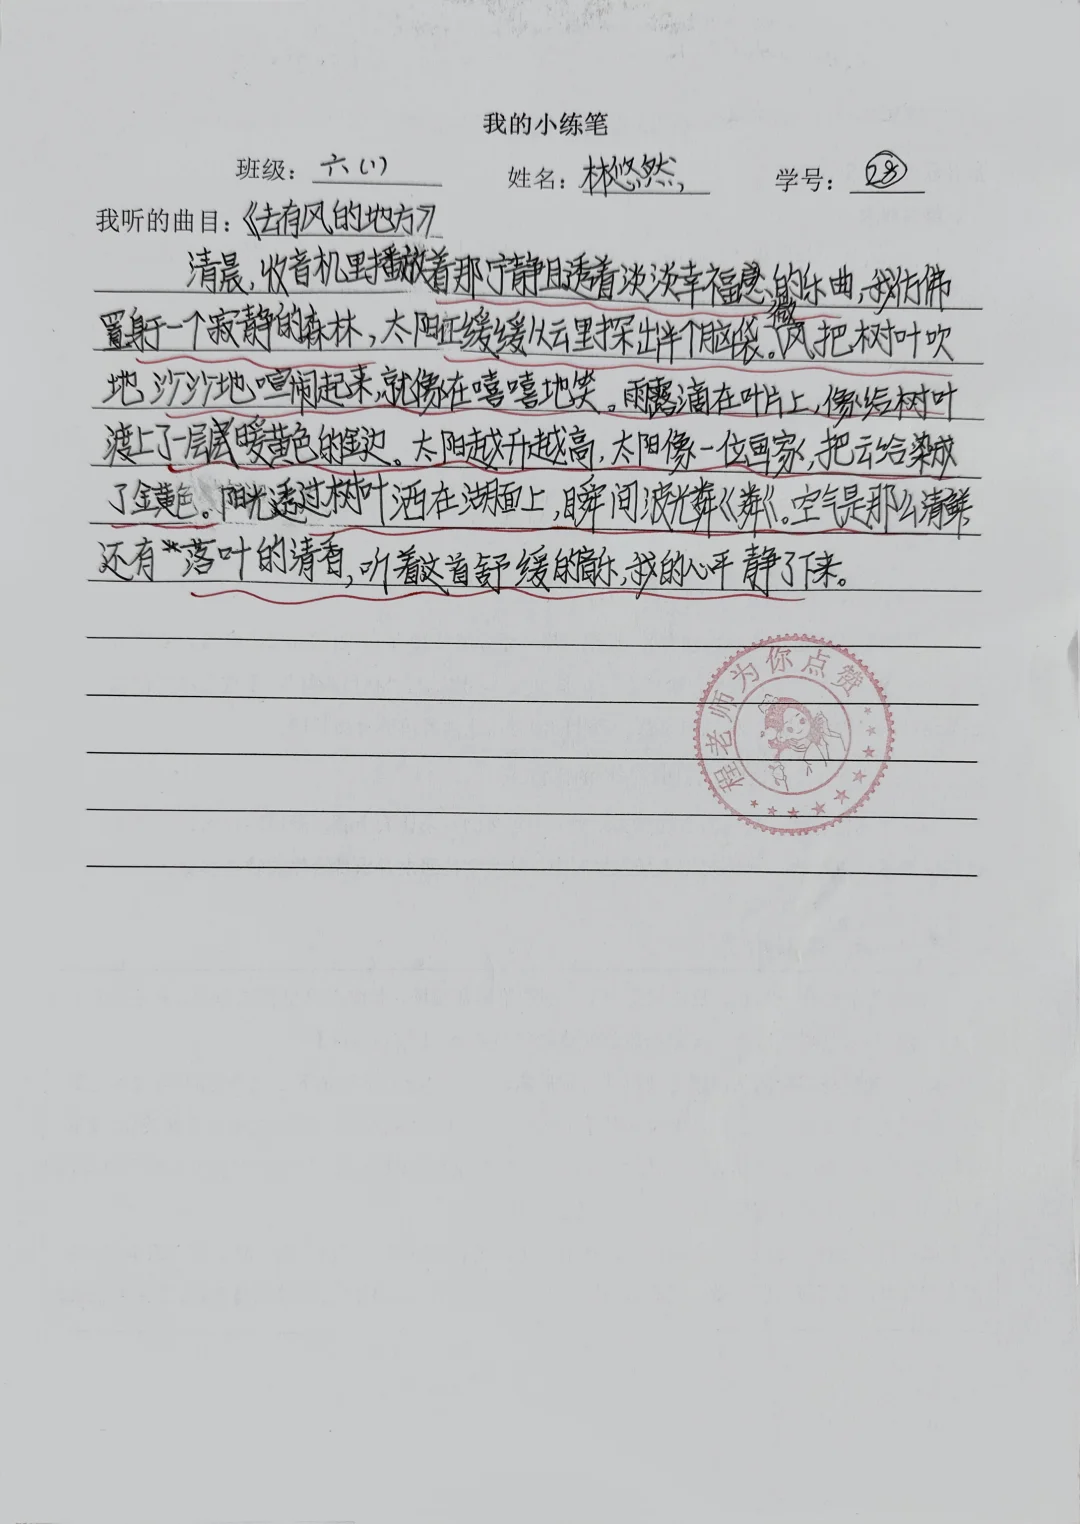 我的小练笔
班级：六(1) 姓名：林悠然 学号：28
我听的曲目：《去有风的地方》
清晨，收音机里播放着那宁静且透着淡淡幸福感的乐曲，我仿佛
置身于一个寂静的森林，太阳正缓缓从云里探出半个脑袋。微风把树叶吹
地沙沙地喧闹起来，就像在嘻嘻地笑。雨露滴在叶片上，像给树叶
渡上了一层层暖黄色的金边。太阳越升越高，太阳像一位画家，把云给染成
了金黄色。阳光透过树叶洒在湖面上，瞬间波光粼粼。空气是那么清鲜
还有落叶的清香，听着这首舒缓的音乐，我的心平静了下来。
程老师为你点赞